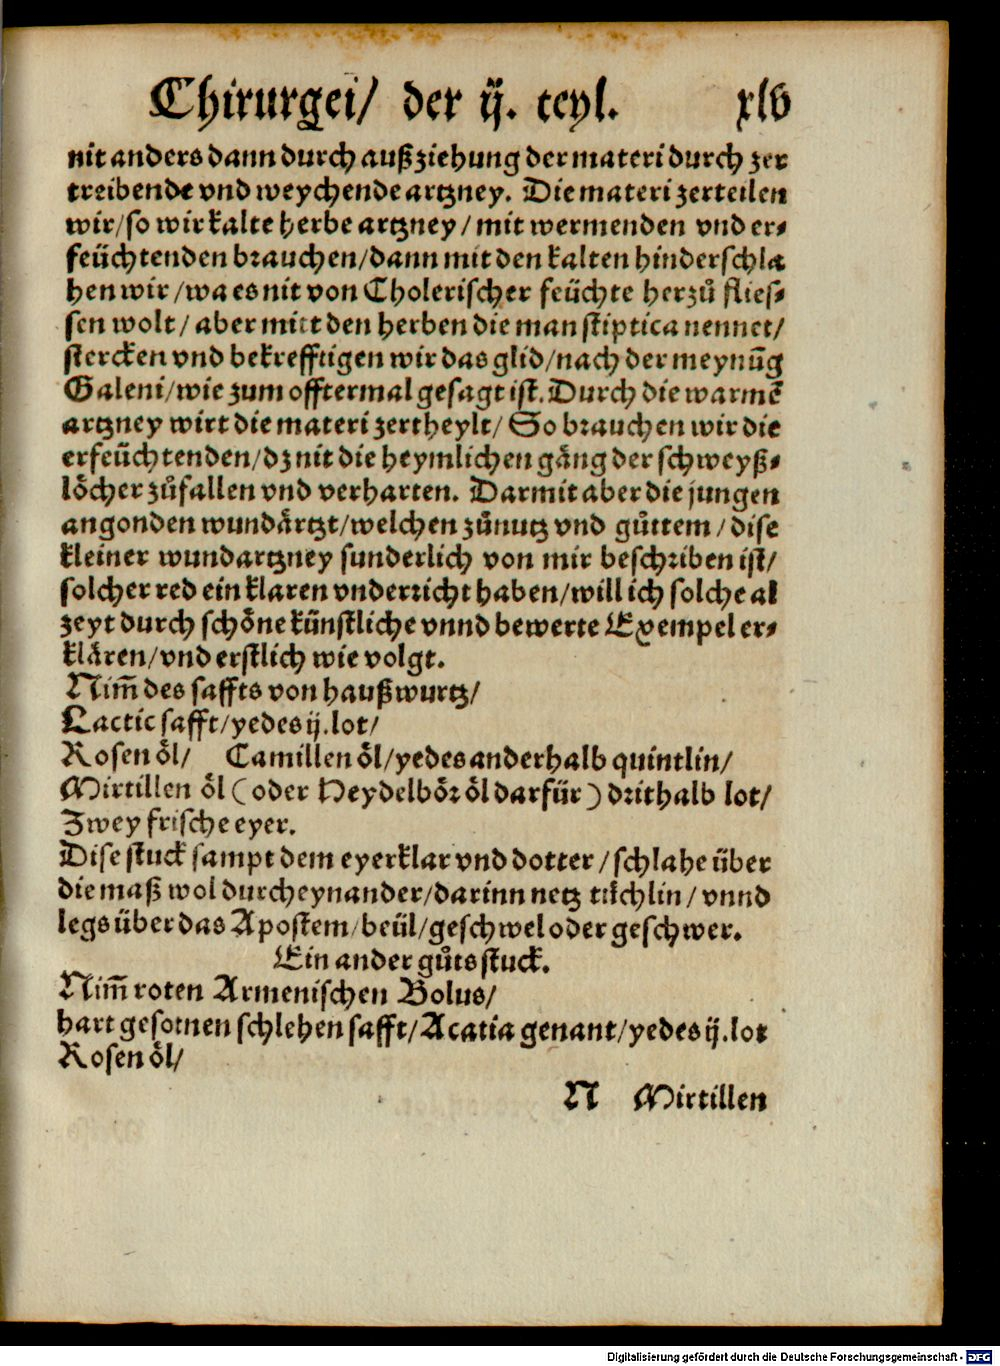 Chirurgei/ der ij. teyl. xlv
nit anders dann durch außziehung der materi durch zer
treibende vnd weychende artzney. Die materi zerteilen
wir/so wir kalte herbe artzney/mit wermenden vnd er⸗
feüchtenden brauchen/dann mit den kalten hinderschla
hen wir/wa es nit von Cholerischer feüchte herzů flies⸗
sen wolt/aber mitt den herben die man stiptica nennet/
stercken vnd bekrefftigen wir das glid/nach der meynũg
Galeni/wie zum offtermal gesagt ist. Durch die warmē
artzney wirt die materi zertheylt/So brauchen wir die
erfeüchtenden/dz nit die heymlichen gäng der schweyß⸗
löcher zůfallen vnd verharten. Darmit aber die jungen
angonden wundärtzt/welchen zůnutz vnd gůttem/dise
kleiner wundartzney sunderlich von mir beschriben ist/
solcher red ein klaren vnderricht haben/will ich solche al
zeyt durch schöne künstliche vnnd bewerte Exempel er⸗
klären/vnd erstlich wie volgt.
Nim̃ des saffts von haußwurtz/
Lactic safft/yedes ij.lot/
Rosen öl/ Camillen öl/yedes anderhalb quintlin/
Mirtillen öl (oder Heydelbör öl darfür) drithalb lot/
Zwey frische eyer.
Dise stuck sampt dem eyerklar vnd dotter/schlahe über
die maß wol durcheynander/darinn netz tůchlin/vnnd
legs über das Apostem/beül/geschwel oder geschwer.
Ein ander gůts stuck.
Nim̃ roten Armenischen Bolus/
hart gesotnen schlehen safft/Acatia genant/yedes ij.lot
Rosen öl/
N Mirtillen
Digitalisierung gefördert durch die Deutsche Forschungsgemeinschaft - DFG